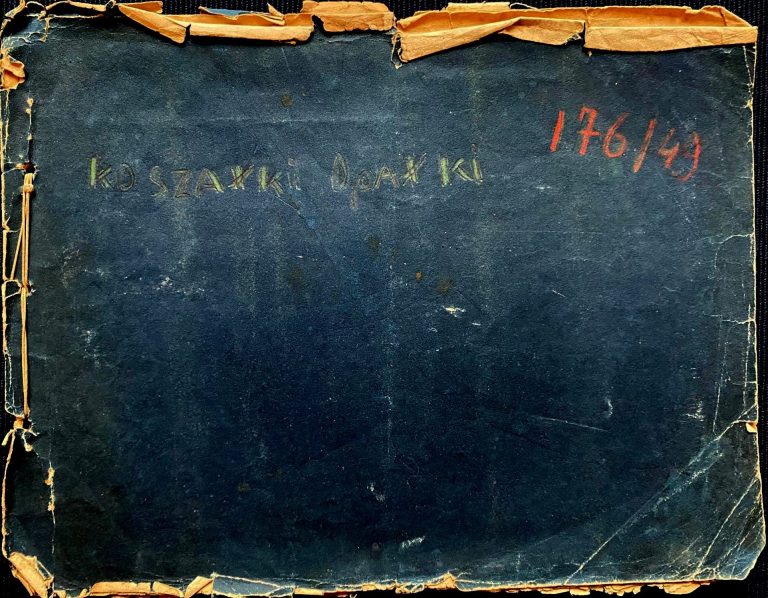 176/49
KOSZAŁKi OpAŁKi